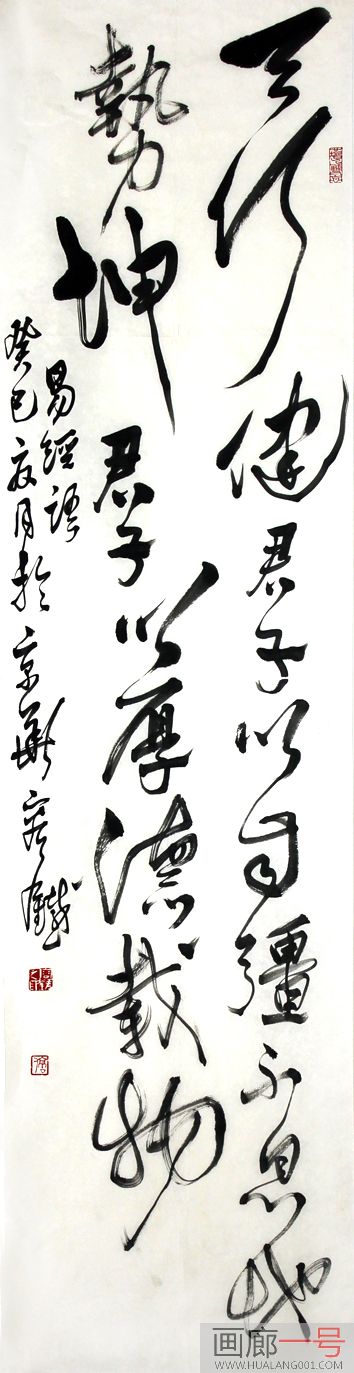 天行健君子以自強不息地
勢坤君子以厚德載物
易經語
癸巳夜月於京華
画廊一号
WWW.HUALANG001.COM